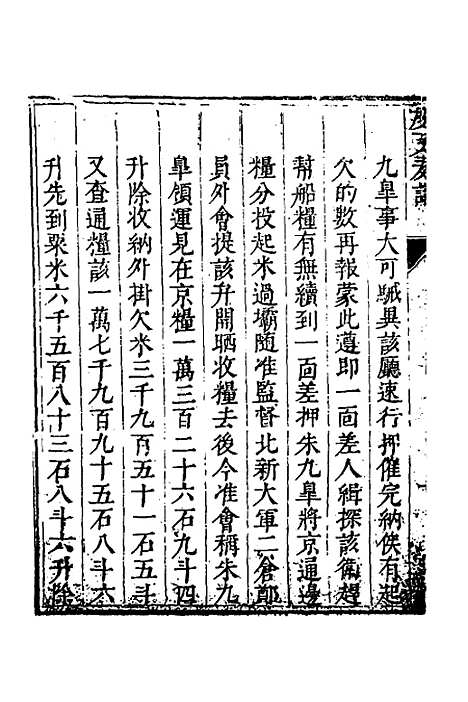 九臯事大可駴異該廳速行押催完納俟有起
欠的數再報蒙此遵即一面差人緝探該衛趕
幇船糧有無續到一面差押朱九臯將京通邊
糧分投起米過壩随准監督北新大軍二倉郎
員外會提該升開晒收糧去後今准會稱朱九
臯領運見在京糧一萬三百二十六石九斗四
升除收納外掛欠米三千九百五十一石五斗
又查通糧該一萬七千九百九十五石八斗六
升先到粟米六千五百八十三石八斗六升除